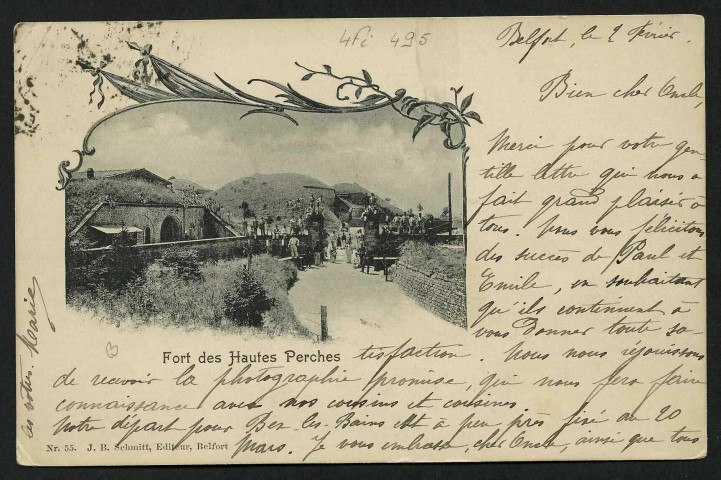 4Fi 495
Belfort, le 2 février.
Bien cher Oncle,
Merci pour votre gen-
tille lettre qui nous a
fait grand plaisir à
tous. Nous vous félicitons
des succès de Paul et
Emile, en souhaitant
qu'ils continuent à
vous donner toute sa-
tisfaction. Nous nous réjouissons
de recevoir la photographie promise, qui nous fera faire
connaissance avec nos cousins et cousines
Notre départ pour Ber-les-Bains est à peu près fixé au 20
Mars. Je vous embrasse, cher Oncle, ainsi que tous
les vôtres. Marie
Fort des Hautes Perches
Nr. 55. J. B. Schmitt, Editeur, Belfort